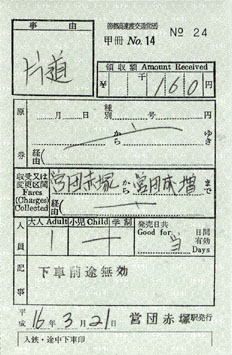 事由
(帝都高速度交通営団)
甲冊 No.14 No 24
片道
領収額 Amount Received
¥ 千 160
原券
月 日 種別 号
から ゆき
経由( )
収受又は変更区間 Fares (Charges) Collected
営団赤塚から 営団成増まで
経由( )
人員 大人 Adult 小児 Child 学割
1
発売日共 Good for 当 日間有効 Days
記事
下車前途無効
平成 16年 3月 21日 営団赤塚駅発行
入鋏・途中下車印